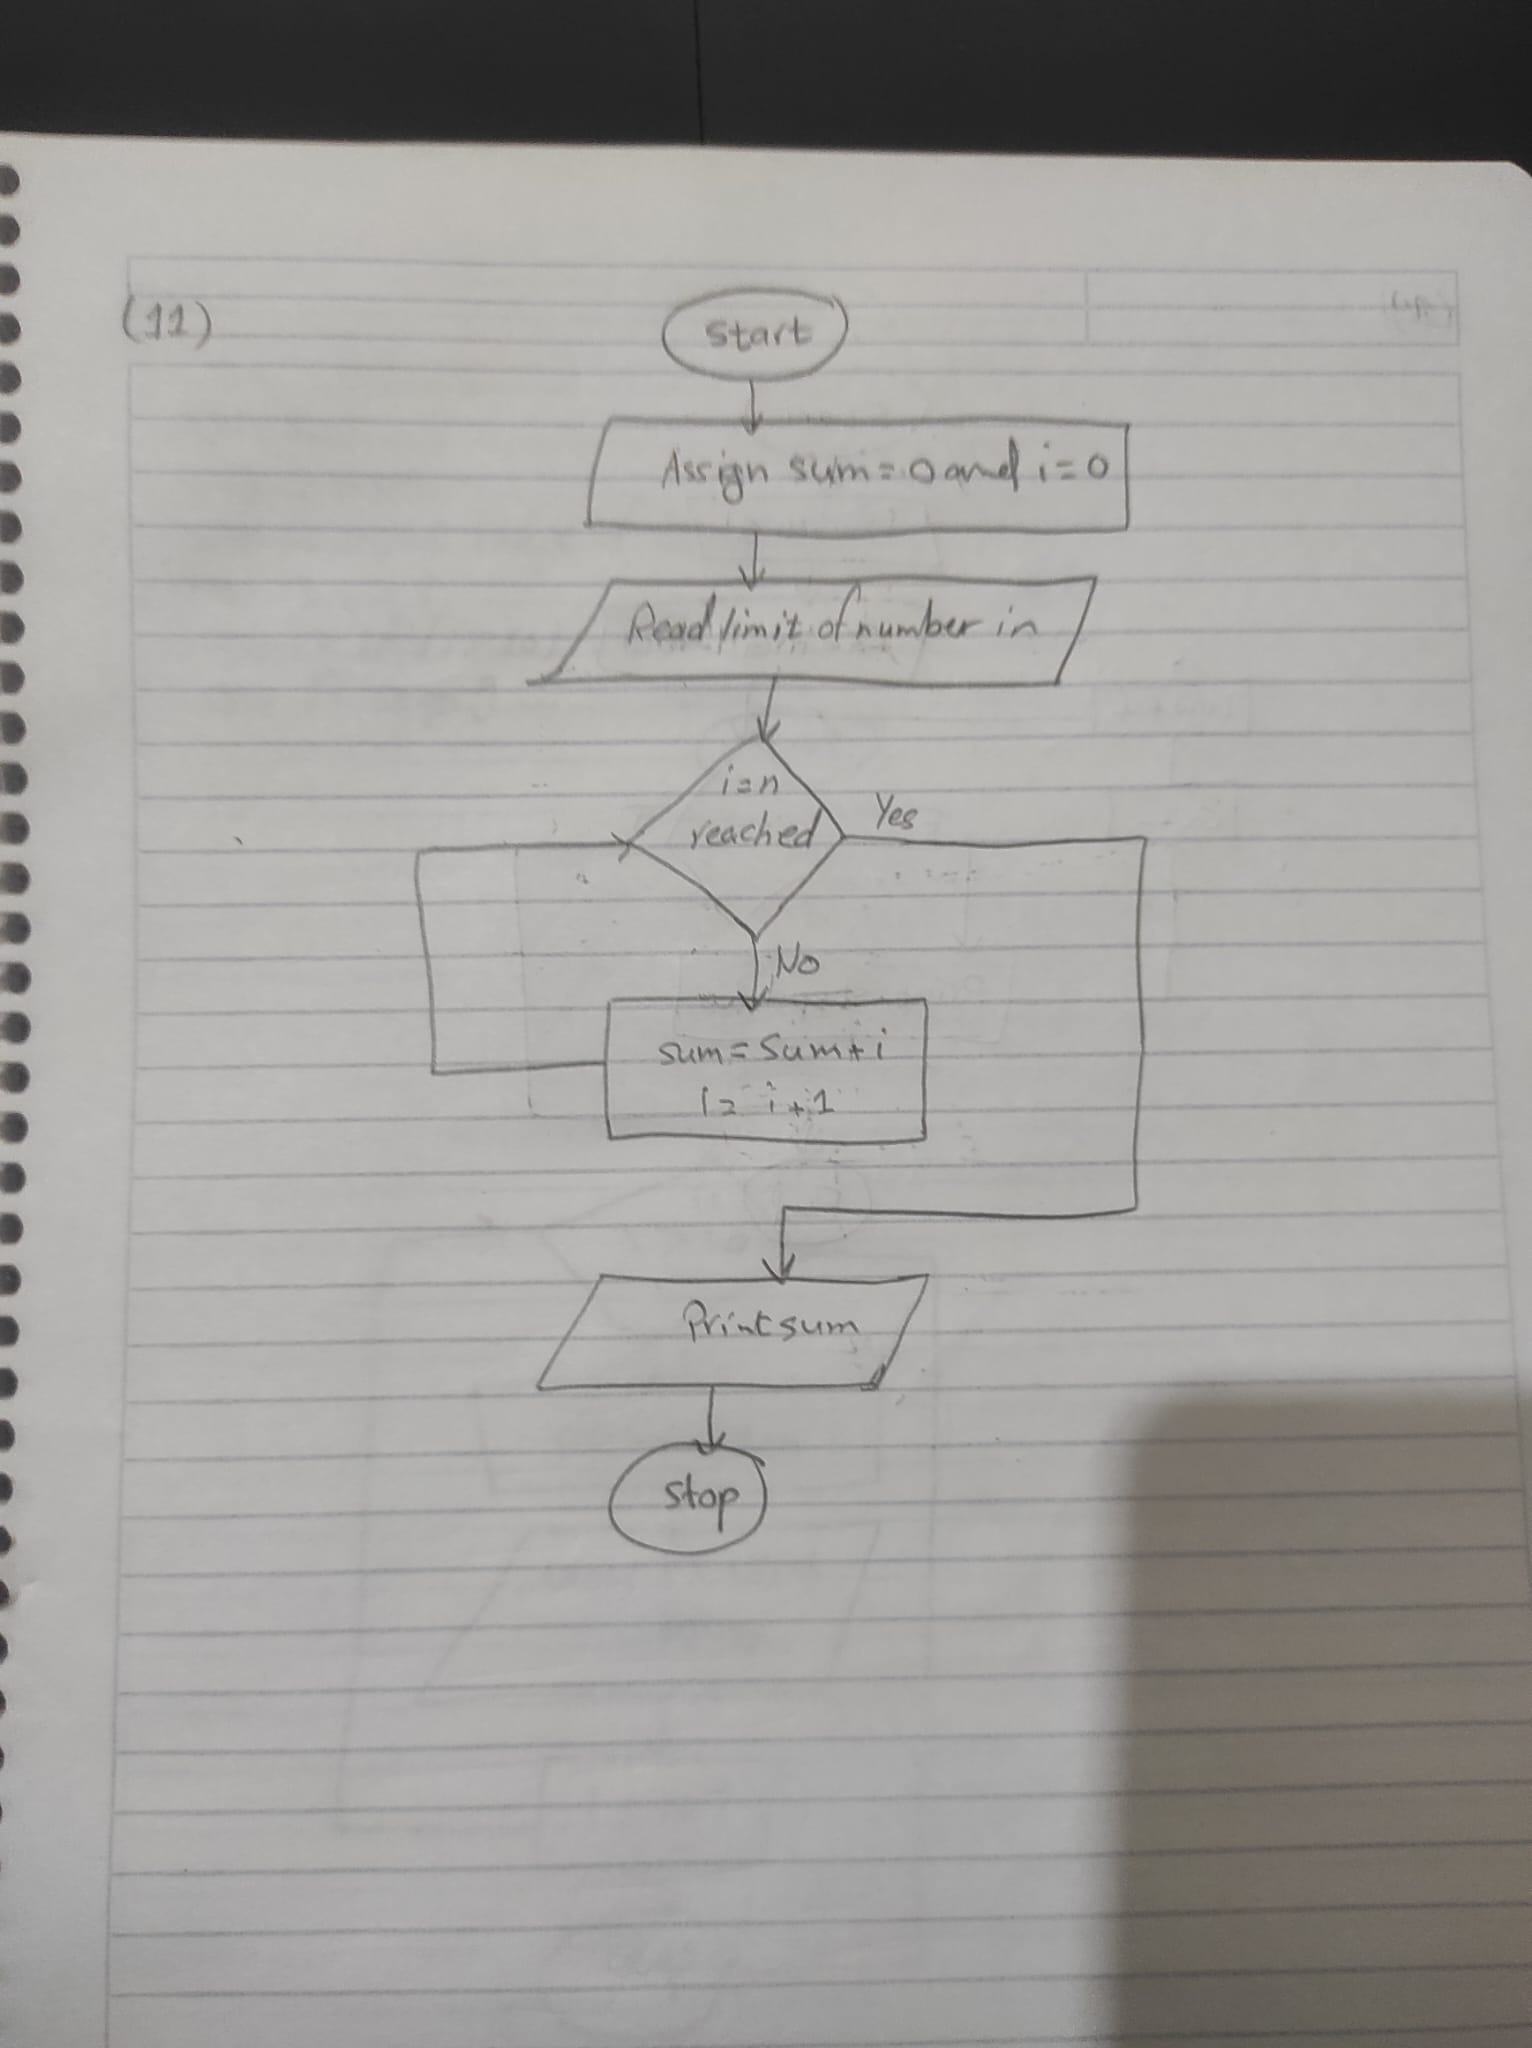 (11)
Start
Assign sum = 0 and i = 0
Read limit of number in
i=n
reached
Yes
No
sum = Sum + i
i = i + 1
Print sum
Stop